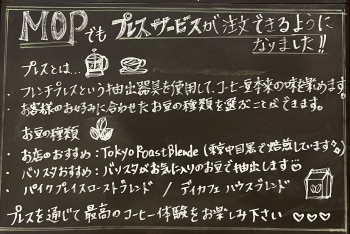 MOPでもプレスサービスが注文できるように
なりました!!
プレスとは...
・フレンチプレスという抽出器具を使用して、コーヒー豆本来の味を楽しめます。
・お客様のお好みに合わせたお豆の種類を選ぶことができます。
お豆の種類
・お店のおすすめ:Tokyo Roast Blende (東京中目黒で焙煎しています)
・バリスタおすすめ:バリスタがお気に入りのお豆で抽出します
・パイクプレイスローストブレンド / ディカフェ ハウスブレンド
プレスを通じて最高のコーヒー体験をお楽しみ下さい ♡♡♡